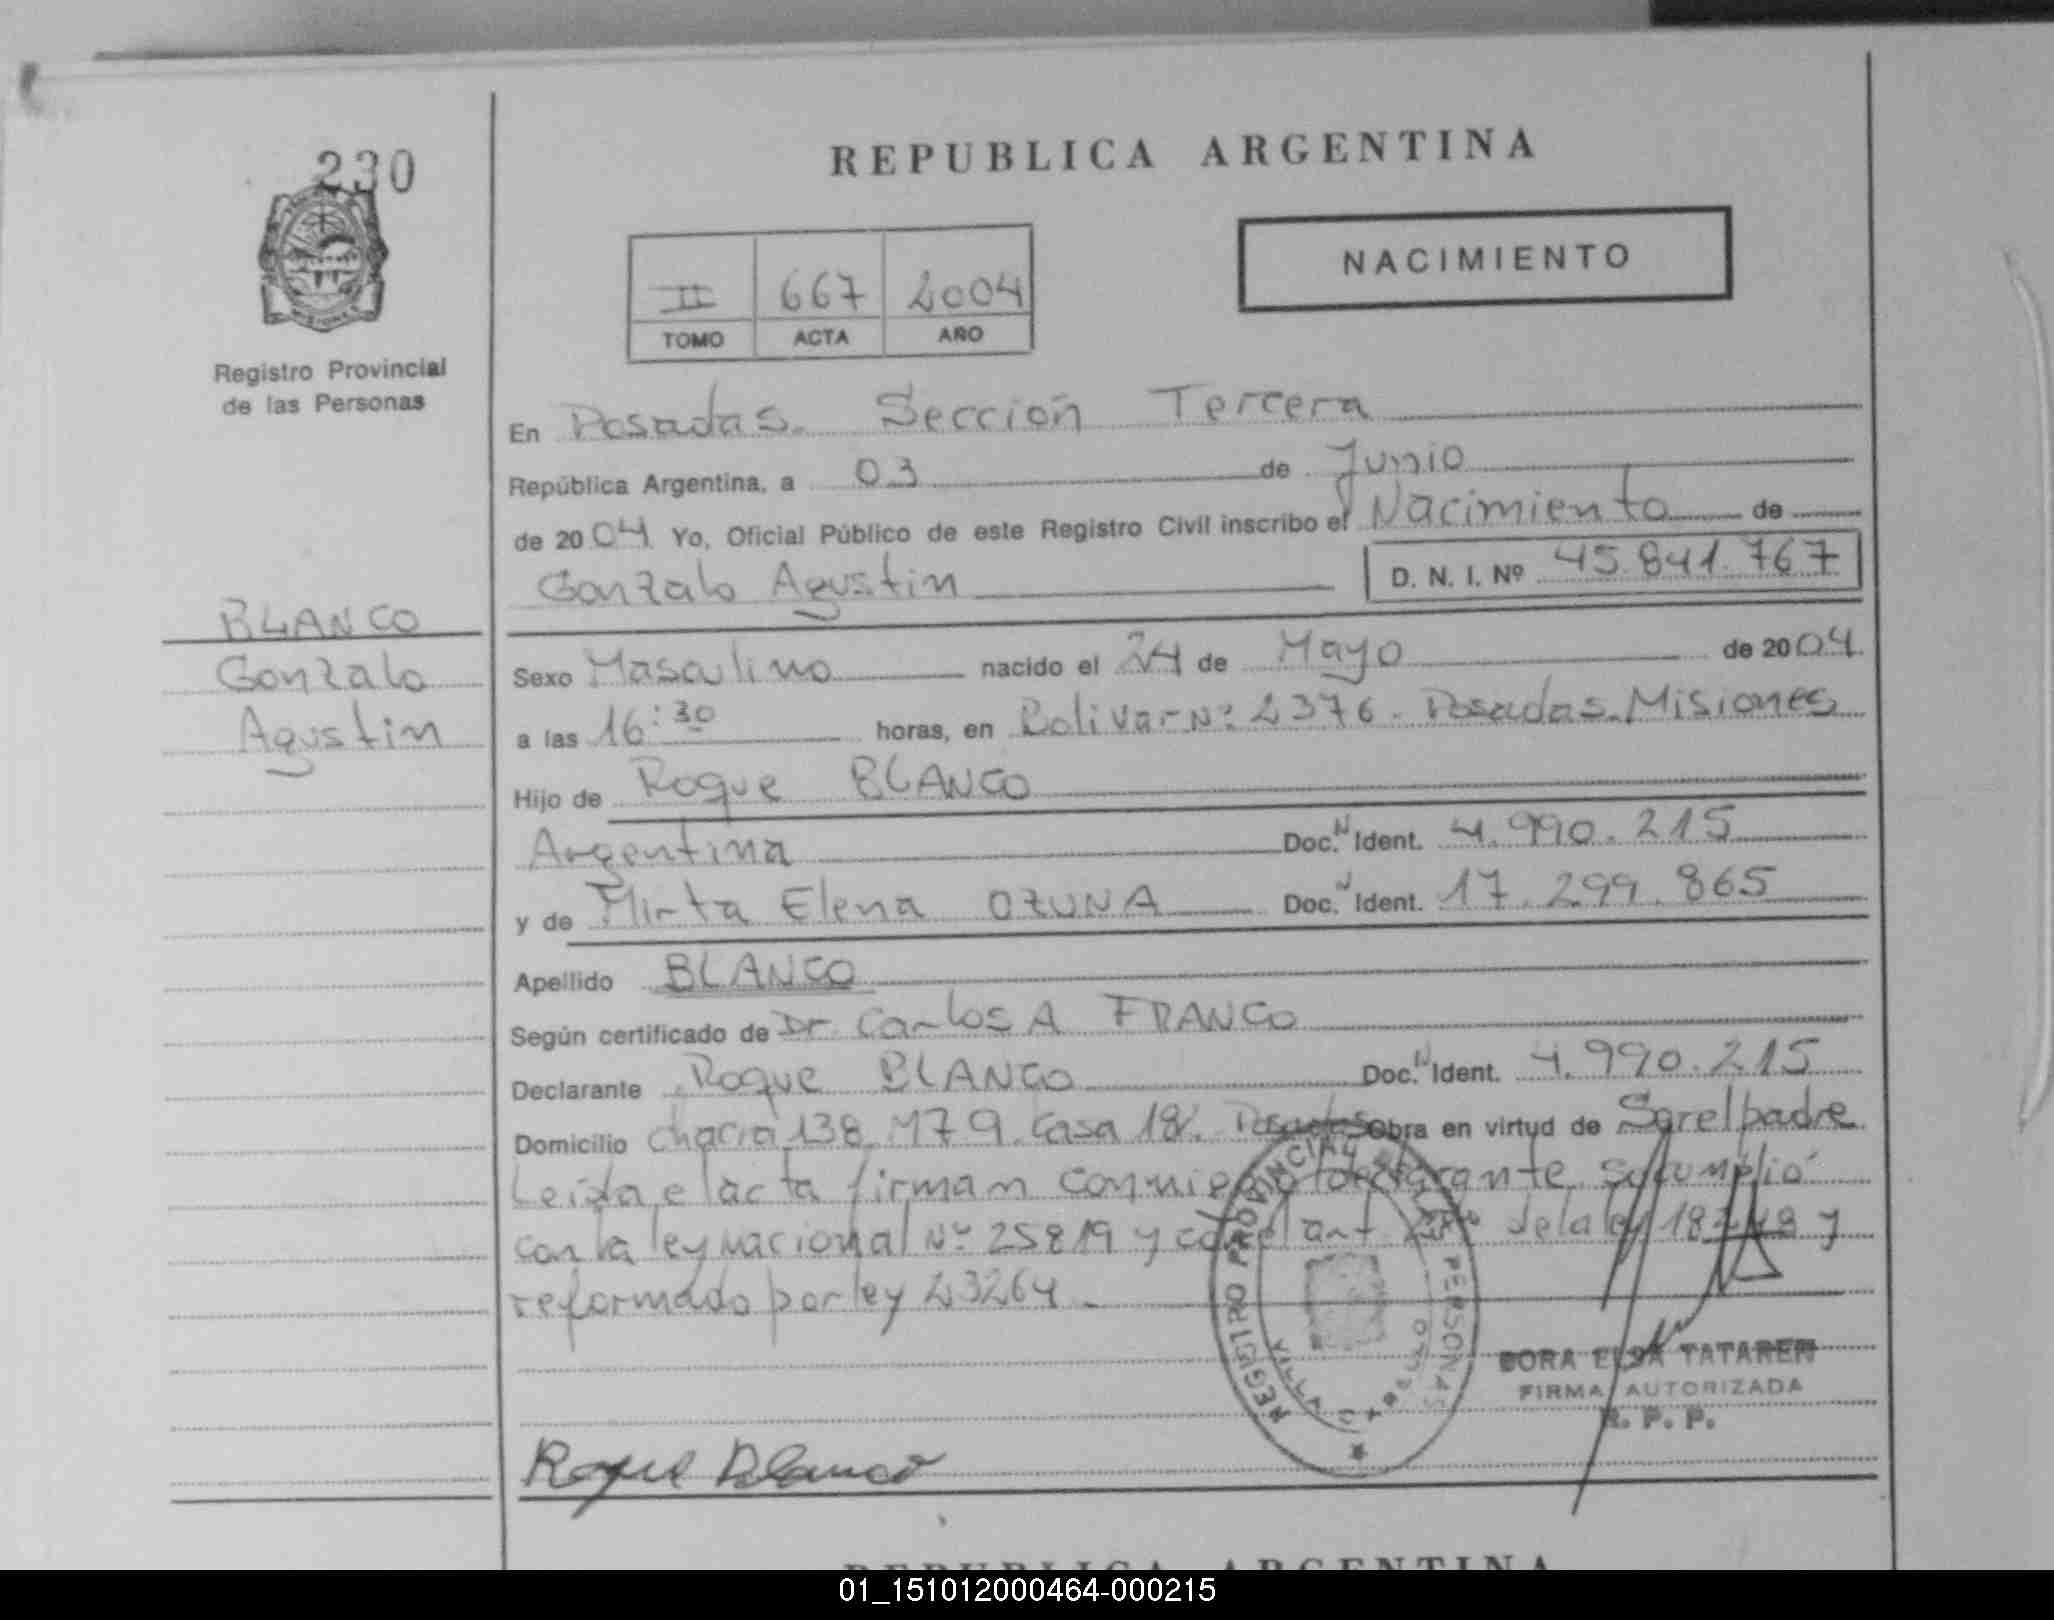 230
MISIONES
Registro Provincial
de las Personas
BLANCO
Gonzalo
Agustin
REPUBLICA ARGENTINA
NACIMIENTO
II 667 2004
TOMO ACTA AÑO
En Posadas. Sección Tercera
República Argentina, a 03 de Junio
de 2004 Yo, Oficial Público de este Registro Civil inscribo el Nacimiento de
Gonzalo Agustin D. N. I. Nº 45.841.767
Sexo Masculino nacido el 24 de Mayo de 2004
a las 16:30 horas, en Bolivar Nº 2376. Posadas. Misiones
Hijo de Roque BLANCO
Argentina Doc. N Ident. 4.990.215
y de Mirta Elena OZUNA Doc. N Ident. 17.299.865
Apellido BLANCO
Según certificado de Dr. Carlos A FRANCO
Declarante Roque BLANCO Doc. N Ident. 4.990.215
Domicilio chacra 138 M79 Casa 18. Posadas Obra en virtud de Ser el padre
Leida el acta firman conmigo declarante se cumplió
con la ley nacional Nº 25819 y con el art. de la ley 18248 y
reformado por ley 23264 -
REGISTRO PROVINCIAL PERSONAS
VILLA
DORA ELSA TATAREN
FIRMA AUTORIZADA
R. P. P.
Roque Blanco
REPUBLICA ARGENTINA
01_151012000464-000215